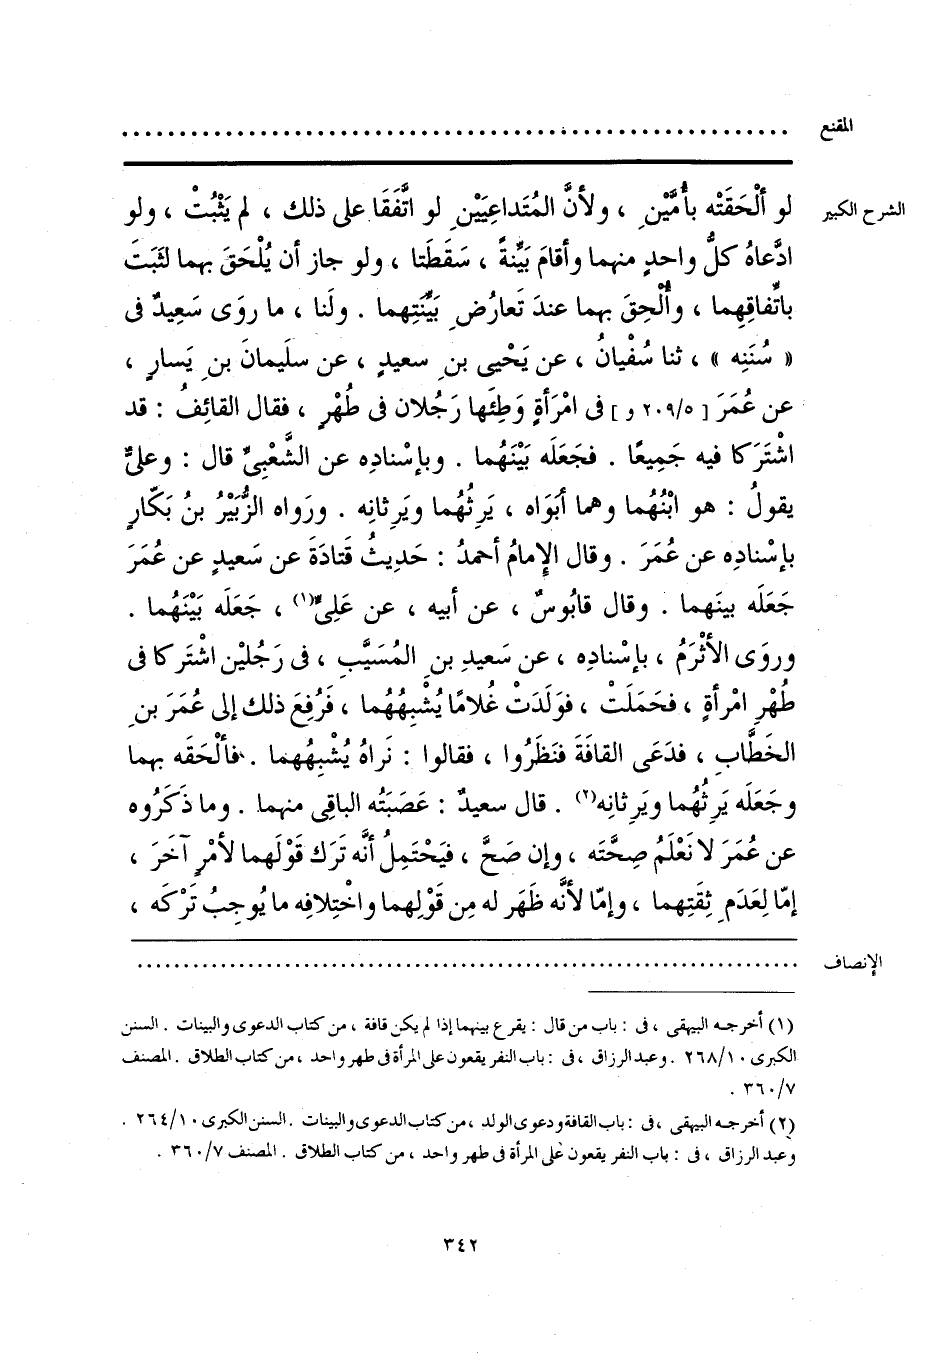 المقنع ........................................................
الشرح الكبير لو ألْحَقَتْه بأُمَّيْنِ ، ولأنَّ المُتَداعِيَيْنِ لو اتَّفَقَا على ذلك ، لم يَثْبُتْ ، ولو
ادَّعاهُ كلُّ واحدٍ منهما وأقامَ بَيِّنةً ، سَقَطَتا ، ولو جاز أن يُلْحَقَ بهما لثَبَتَ
باتِّفاقِهما ، وأُلْحِقَ بهما عندَ تَعارُضِ بَيِّنَتِهما . ولَنا ، ما روَى سَعِيدٌ فى
« سُنَنِه » ، ثنا سُفْيانُ ، عن يَحْيى بنِ سعيدٍ ، عن سليمانَ بنِ يَسارٍ ،
عن عُمَرَ [ ٢٠٩/٥ و ] فى امْرَأةٍ وَطِئَها رَجُلان فى طُهْرٍ ، فقال القائِفُ : قد
اشْتَرَكا فيه جَمِيعًا . فجَعَلَه بَيْنَهُما . وبإسْنادِه عن الشَّعْبِىِّ قال : وعلىٌّ
يقولُ : هو ابْنُهُما وهما أبَوَاه ، يَرِثُهُما ويَرِثانِه . ورَواه الزُّبَيْرُ بنُ بَكَّارٍ
بإسْنادِه عن عُمَرَ . وقال الإِمامُ أحمدُ : حَدِيثُ قَتادَةَ عن سَعيدٍ عن عُمَرَ
جَعَلَه بينَهما . وقال قابُوسٌ ، عن أبيه ، عن عَلِىٍّ(١) ، جَعَلَه بَيْنَهُما .
وروَى الأثْرَمُ ، بإسْنادِه ، عن سَعيدِ بنِ المُسَيَّبِ ، فى رَجُلَيْن اشْتَركا فى
طُهْرِ امْرأةٍ ، فحَمَلَتْ ، فوَلَدَتْ غُلامًا يُشْبِهُهُما ، فَرُفِعَ ذلك إلى عُمَرَ بنِ
الخَطَّابِ ، فدَعَى القافَةَ فنَظَرُوا ، فقالوا : نَراهُ يُشْبِهُهما . فألْحَقَه بهما
وجَعَلَه يَرِثُهُما ويَرِثانِه(٢) . قال سعيدٌ : عَصَبَتُه الباقِى منهما . وما ذَكَرُوه
عن عُمَرَ لا نَعْلَمُ صِحَّتَه ، وإن صَحَّ ، فيَحْتَمِلُ أنَّه تَرَك قَوْلَهما لأمْرٍ آخَرَ ،
إمّا لِعَدَمِ ثِقَتِهما ، وإمّا لأنَّه ظَهَر له مِن قَوْلِهما واخْتِلافِه ما يُوجِبُ تَرْكَه ،
الإنصاف ........................................................
(١) أخرجه البيهقى ، فى : باب من قال : يقرع بينهما إذا لم يكن قافة ، من كتاب الدعوى والبينات . السنن
الكبرى ٢٦٨/١٠ . وعبد الرزاق ، فى : باب النفر يقعون على المرأة فى طهر واحد ، من كتاب الطلاق . المصنف
٣٦٠/٧ .
(٢) أخرجه البيهقى ، فى : باب القافة ودعوى الولد ، من كتاب الدعوى والبينات . السنن الكبرى ٢٦٤/١٠ .
وعبد الرزاق ، فى : باب النفر يقعون على المرأة فى طهر واحد ، من كتاب الطلاق . المصنف ٣٦٠/٧ .
٣٤٢